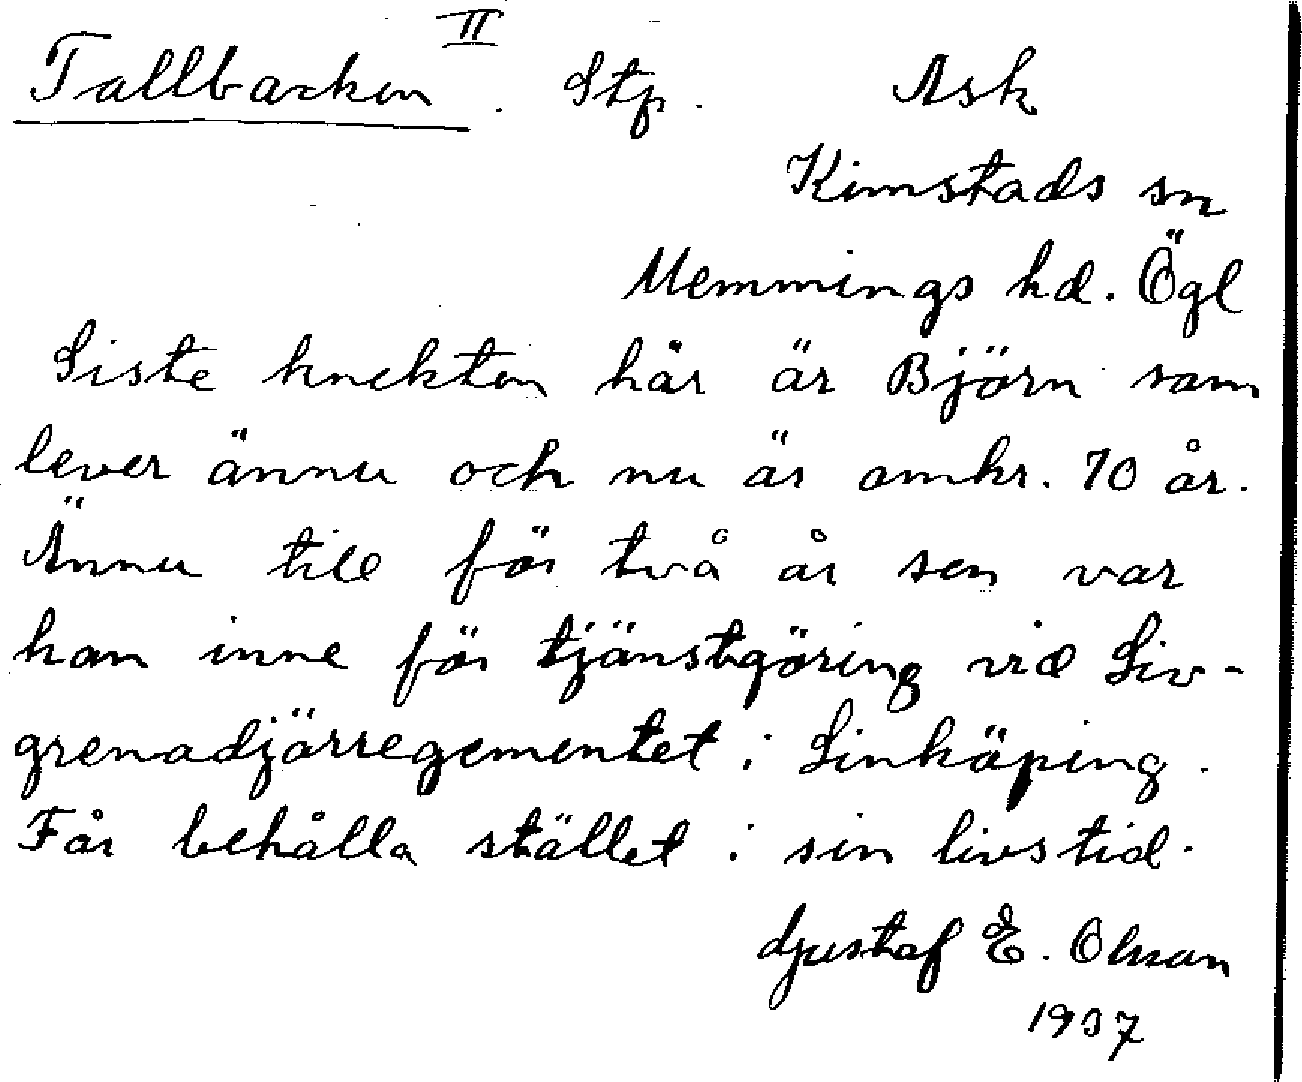 Tallbacken II. Stp. Ask
Kimstads sn
Memmings hd. Ögl
Siste knekten här är Björn som
lever ännu och nu är omkr. 70 år.
Ännu till för två år sen var
han inne för tjänstgöring vid Liv-
grenadjärregementet i Linköping.
Får behålla stället i sin livstid.
Gustaf E. Olsson
1937